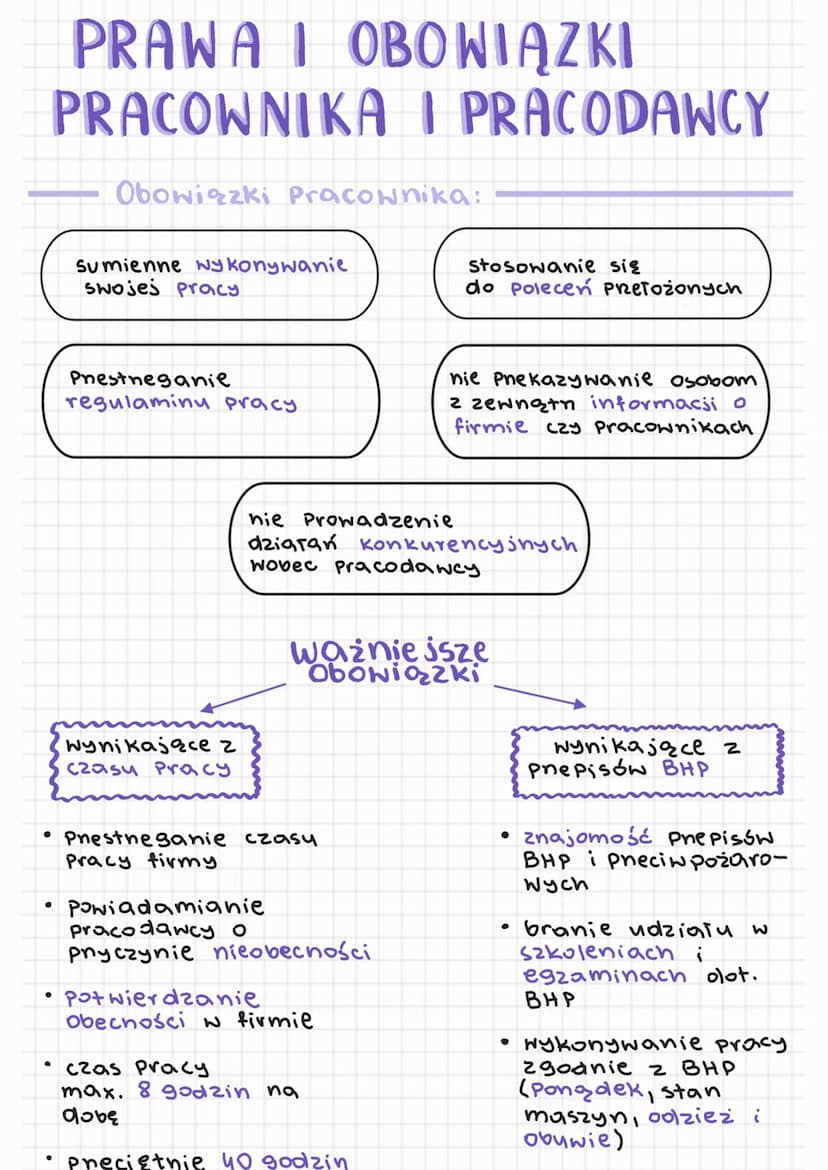 PRAWA I OBOWIĄZKI
PRACOWNIKA I PRACODAWCY
Obowiązki pracownika:
sumienne wykonywanie
swojej pracy
stosowanie się
do poleceń przełożonych
przestrzeganie
regulaminu pracy
nie przekazywanie osobom
z zewnątrz informacji o
firmie czy pracownikach
nie prowadzenie
działań konkurencyjnych
wobec pracodawcy
ważniejsze
obowiązki
wynikające z
czasu pracy
przestrzeganie czasu
pracy firmy
powiadamianie
pracodawcy o
przyczynie nieobecności
potwierdzanie
obecności w firmie
czas pracy
max. 8 godzin na
dobę
przeciętnie 40 godzin
wynikające z
przepisów BHP
znajomość przepisów
BHP i przeciwpożaro-
wych
branie udziału w
szkoleniach i
egzaminach dot.
BHP
wykonywanie pracy
zgodnie z BHP
(porządek, stan
maszyn, odzież i
obuwie)